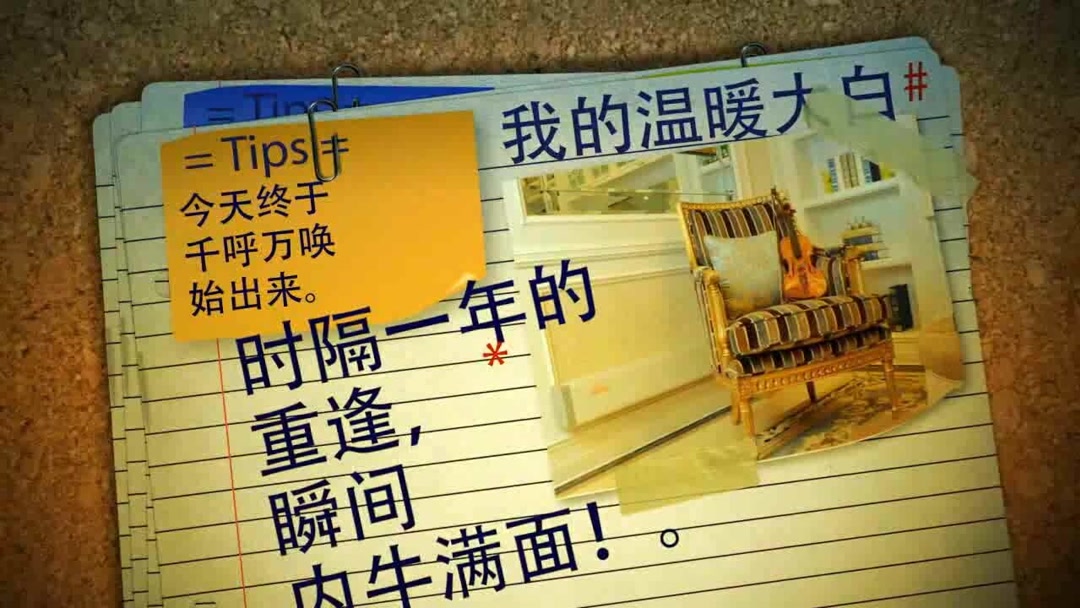 = Tips =
我的温暖大白#
= Tips =
今天终于
千呼万唤
始出来。
时隔一年的
*
重逢,
瞬间
内牛满面！。